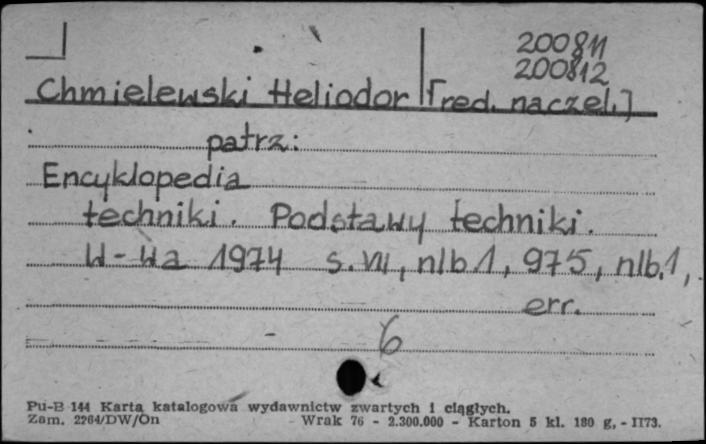 200811
200812
Chmielewski Heliodor [red. naczel.]
patrz:
Encyklopedia
techniki. Podstawy techniki.
W-wa 1974 s. VII, nlb 1, 975, nlb. 1,
err.
6
Pu-B 144 Karta katalogowa wydawnictw zwartych i ciągłych.
Zam. 2264/DW/On - Wrak 76 - 2.300.000 - Karton 5 kl. 180 g, - II73.